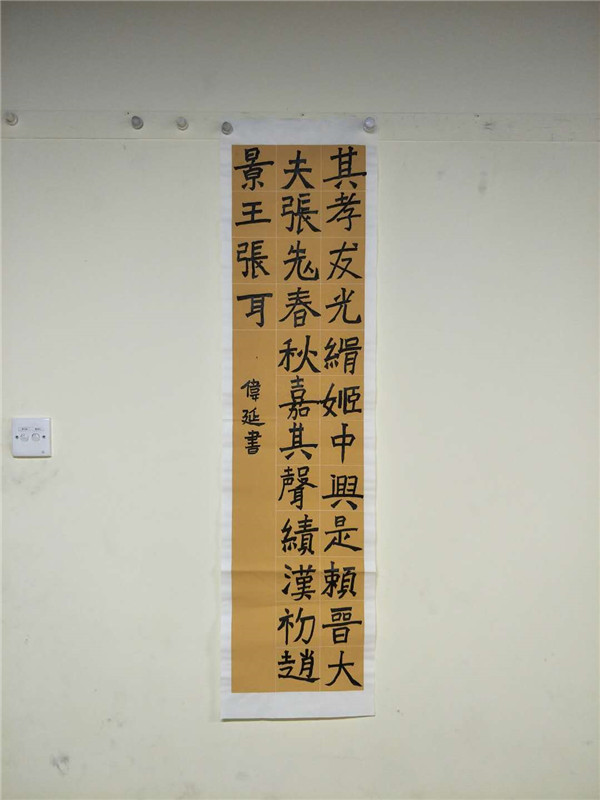 其孝友光緝姬中興是賴晉大
夫張老春秋嘉其聲績漢初趙
景王張耳
偉延書